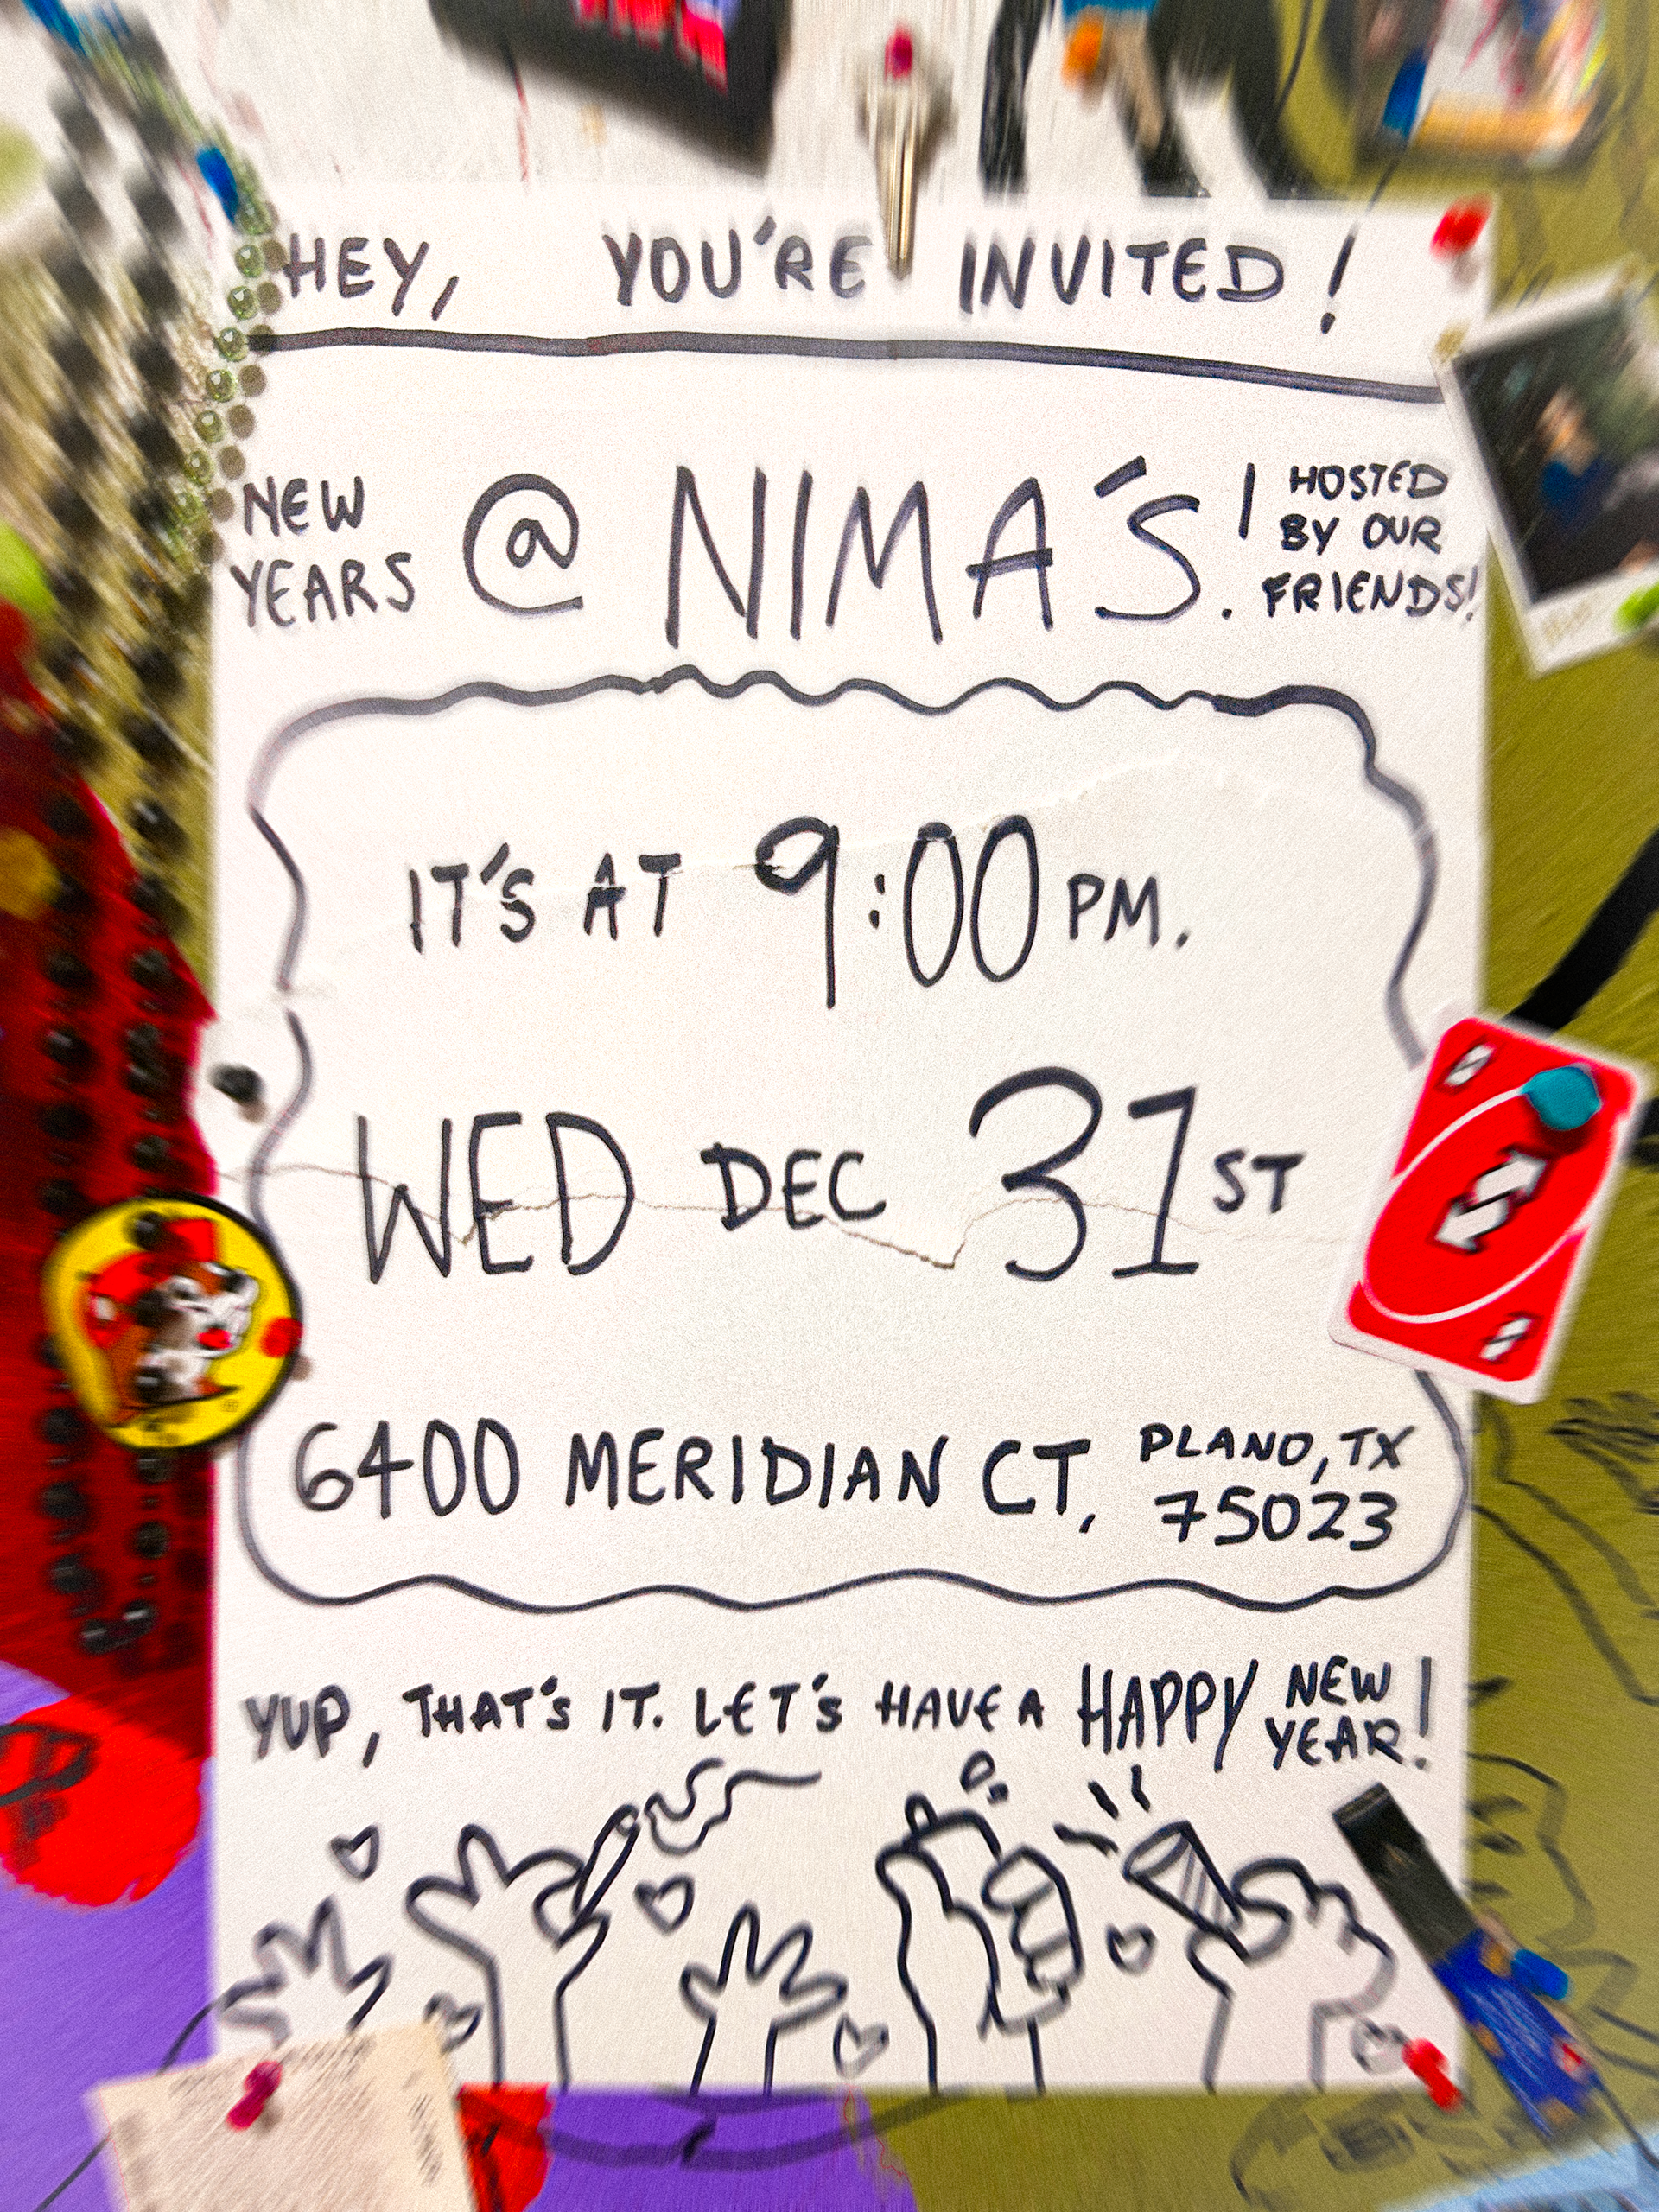 HEY, YOU'RE INVITED!
NEW YEARS @ NIMA'S. | HOSTED BY OUR FRIENDS!
IT'S AT 9:00 PM.
WED DEC 31ST
6400 MERIDIAN CT, PLANO, TX 75023
YUP, THAT'S IT. LET'S HAVE A HAPPY NEW YEAR!